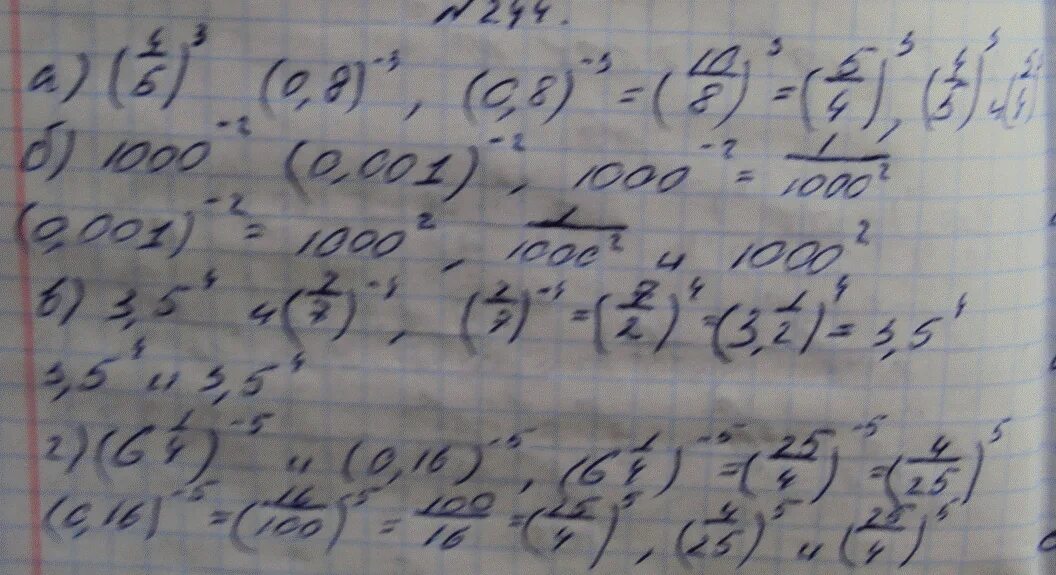 № 244.
а) (4/5)³ (0,8)⁻³, (0,8)⁻³ = (10/8)³ = (5/4)³, (4/5)³ и (5/4)³
б) 1000⁻² (0,001)⁻², 1000⁻² = 1/1000²
(0,001)⁻² = 1000², 1/1000² и 1000²
в) 3,5⁴ и (2/7)⁻⁴, (2/7)⁻⁴ = (7/2)⁴ = (3,1/2)⁴ = 3,5⁴
3,5⁴ и 3,5⁴
г) (6 1/4)⁻⁵ и (0,16)⁻⁵, (6 1/4)⁻⁵ = (25/4)⁻⁵ = (4/25)⁵
(0,16)⁻⁵ = (16/100)⁻⁵ = 100/16 = (25/4)⁵, (4/25)⁵ и (25/4)⁵